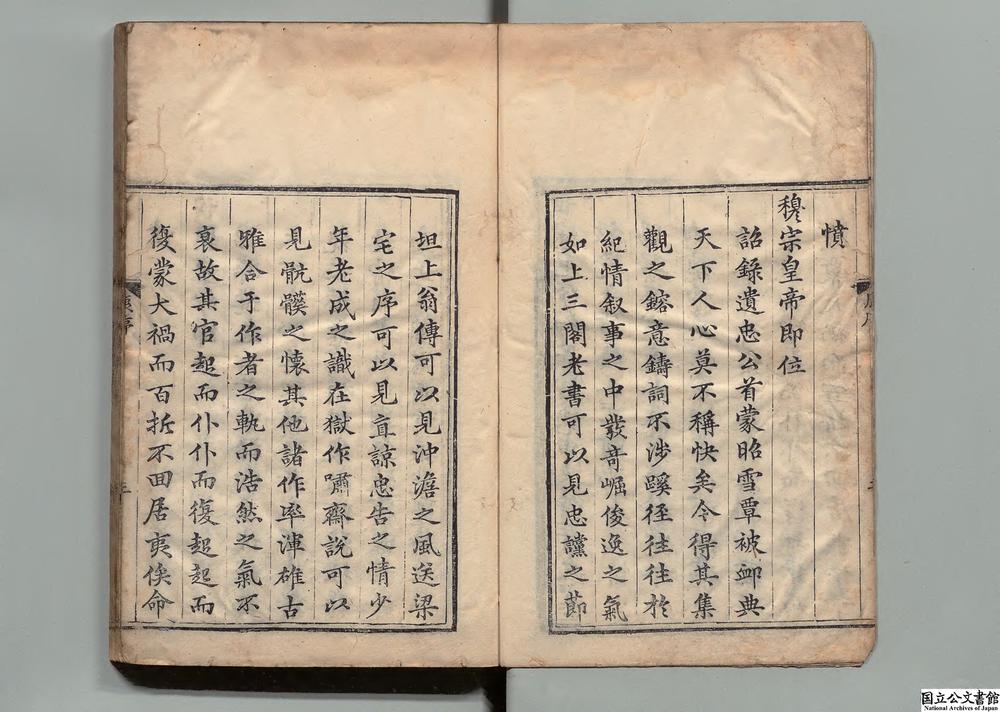 憤
穆宗皇帝即位
詔錄遺忠公首蒙昭雪覃被卹典
天下人心莫不稱快矣今得其集
觀之鎔意鑄詞不涉蹊徑往往於
紀情叙事之中發奇崛俊逸之氣
如上三閣老書可以見忠讜之節
坦上翁傳可以見沖澹之風送梁
宅之序可以見直諒忠告之情少
年老成之識在獄作嘯齋說可以
見骯髒之懷其他諸作率渾雄古
雅合于作者之軌而浩然之氣不
衰故其官起而仆仆而復起起而
復蒙大禍而百折不回居夷俟命
序
国立公文書館
National Archives of Japan